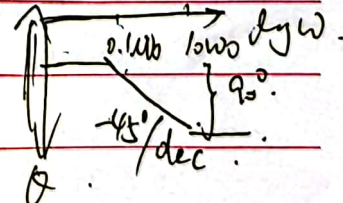 0.1ω₀ 10ω₀ log ω.
90°.
-45°/dec.
θ.